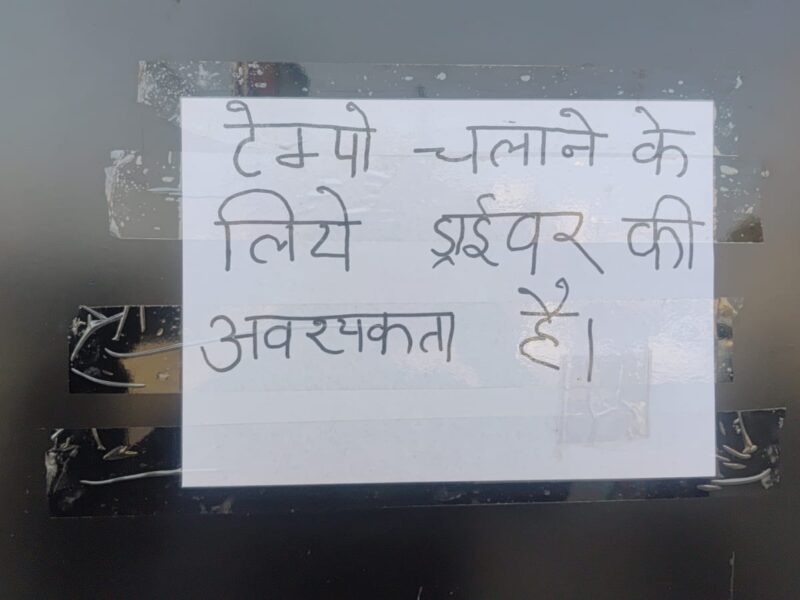 टेम्पो चलाने के
लिये ड्राईवर की
अवश्यकता है।